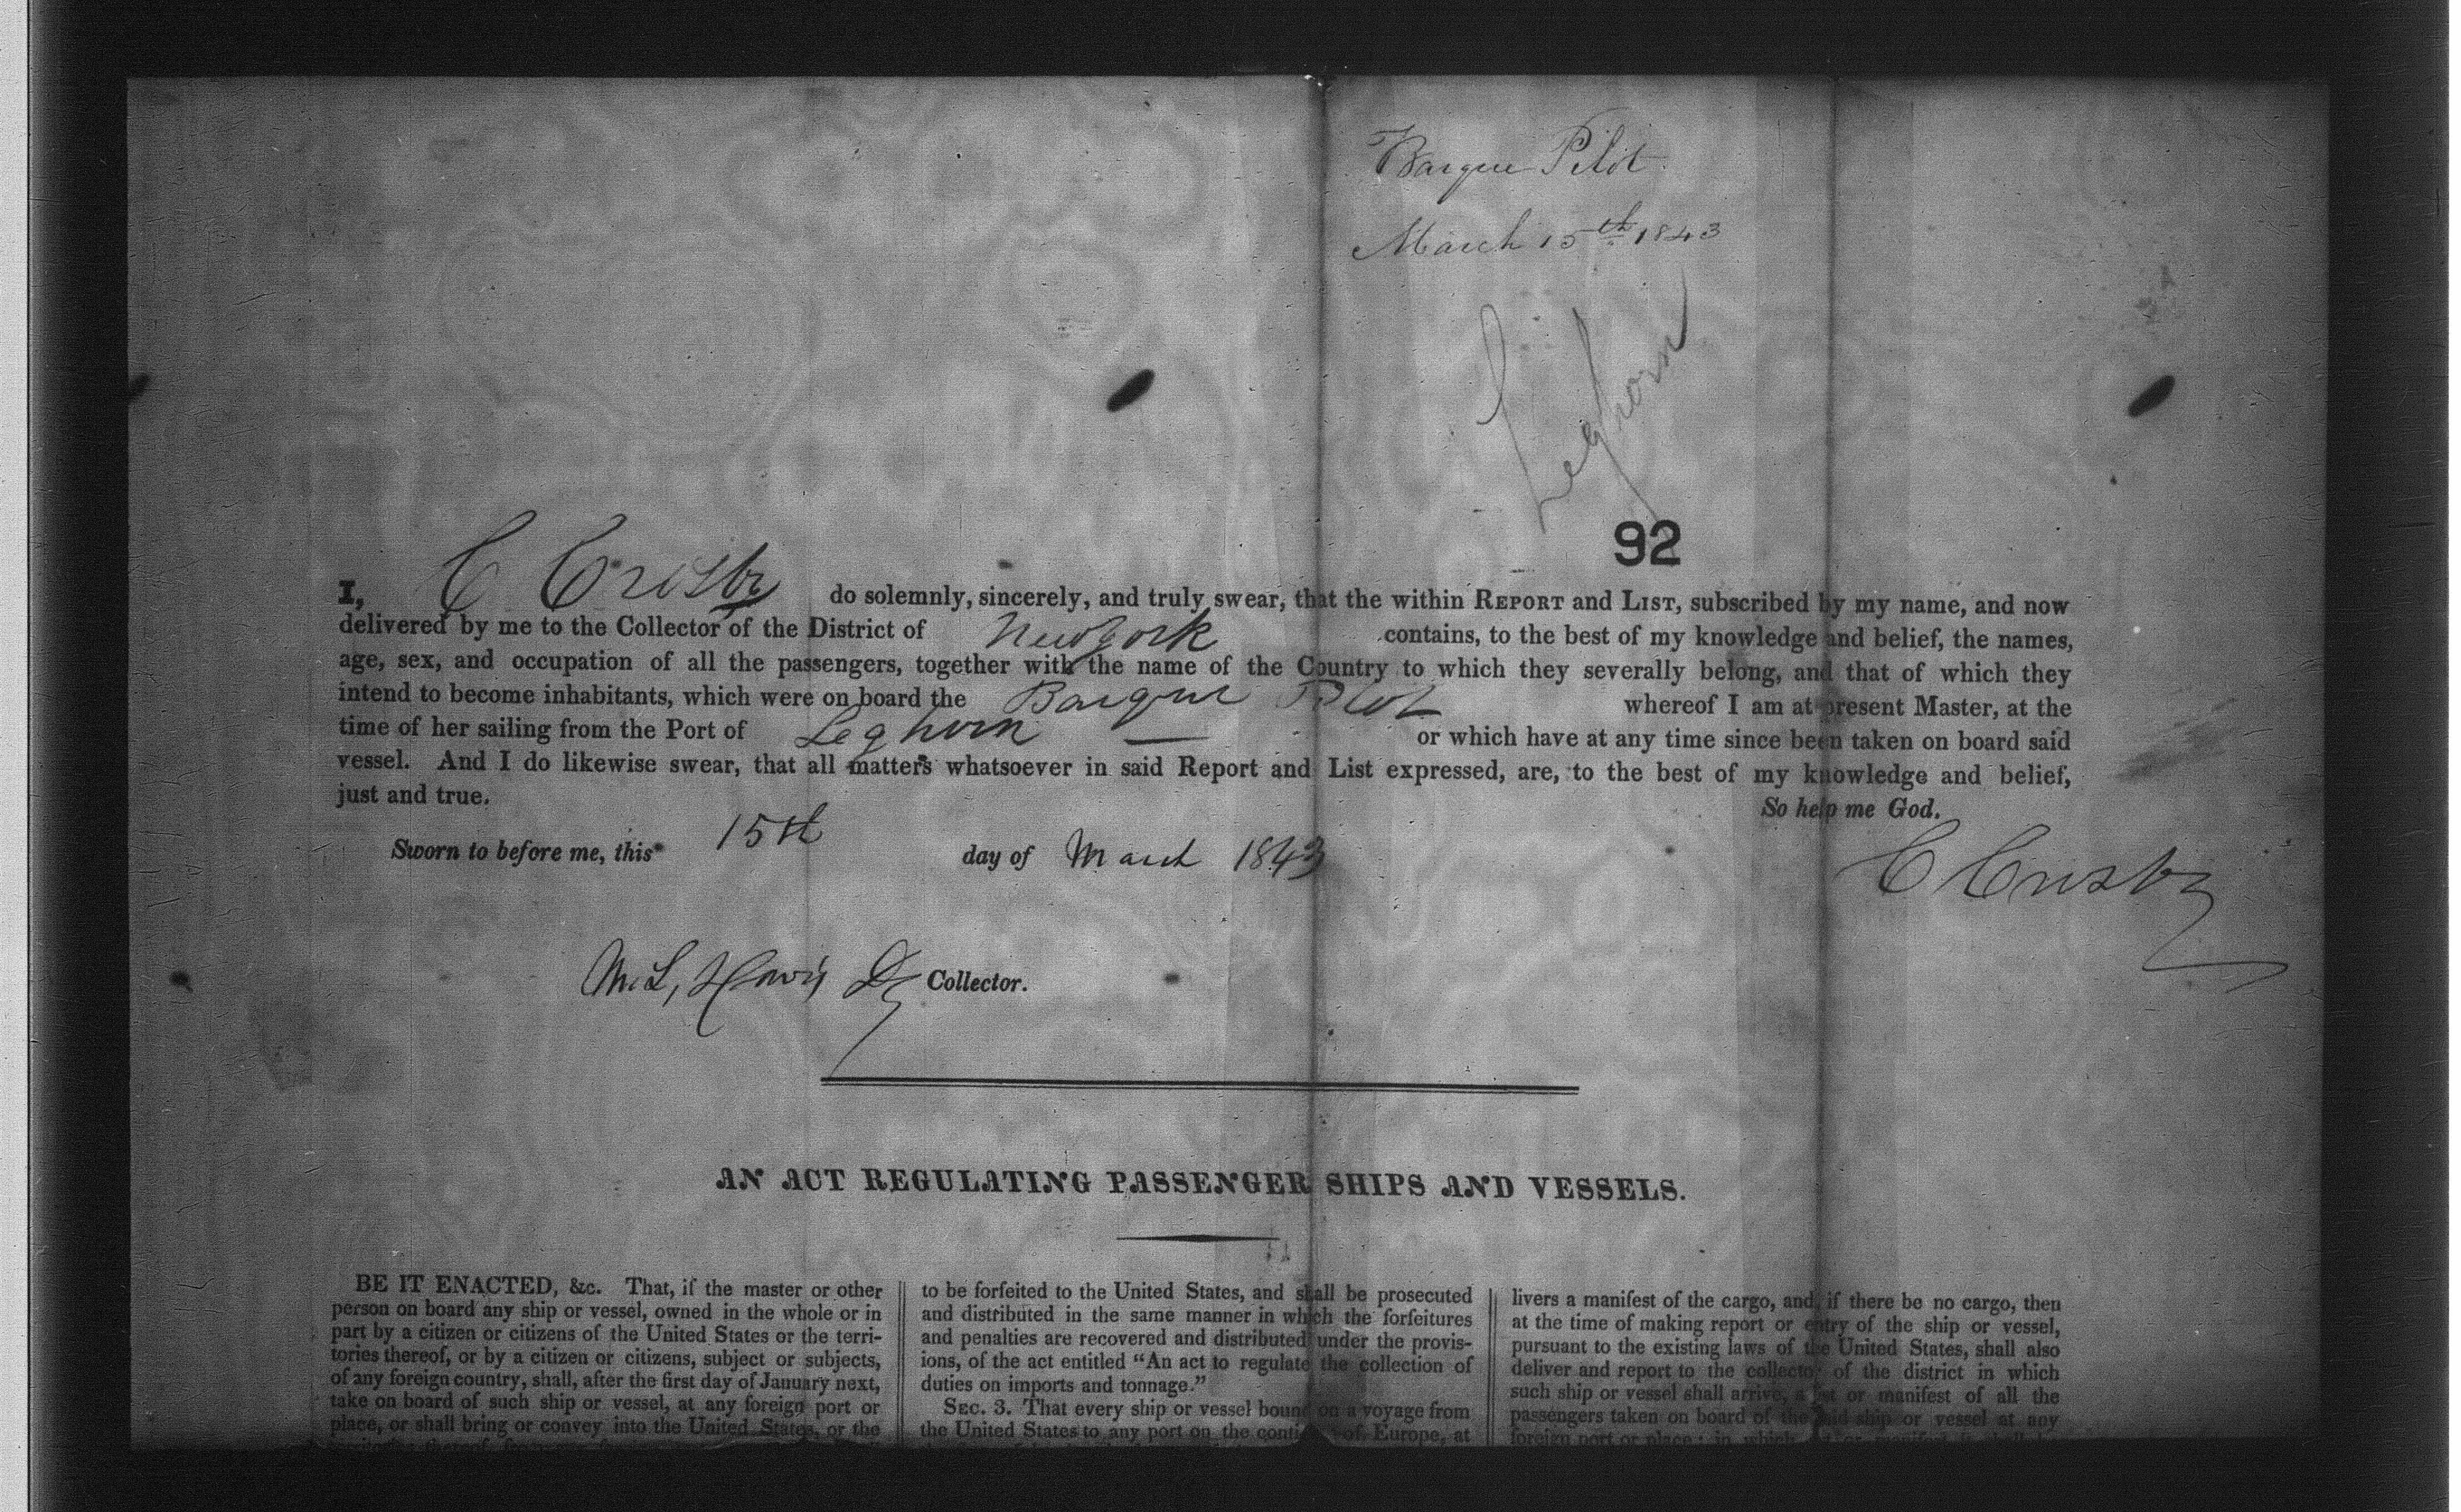 Barque Pilot
March 15th 1843
Leghorn
92
I, C Crosby do solemnly, sincerely, and truly swear, that the within REPORT and LIST, subscribed by my name, and now
delivered by me to the Collector of the District of New York contains, to the best of my knowledge and belief, the names,
age, sex, and occupation of all the passengers, together with the name of the Country to which they severally belong, and that of which they
intend to become inhabitants, which were on board the Barque Pilot whereof I am at present Master, at the
time of her sailing from the Port of Leghorn — or which have at any time since been taken on board said
vessel. And I do likewise swear, that all matters whatsoever in said Report and List expressed, are, to the best of my knowledge and belief,
just and true.
So help me God.
Sworn to before me, this 15th day of March 1843
C Crosby
M. L, Davis Dy Collector.
AN ACT REGULATING PASSENGER SHIPS AND VESSELS.
BE IT ENACTED, &c. That, if the master or other
person on board any ship or vessel, owned in the whole or in
part by a citizen or citizens of the United States or the terri-
tories thereof, or by a citizen or citizens, subject or subjects,
of any foreign country, shall, after the first day of January next,
take on board of such ship or vessel, at any foreign port or
place, or shall bring or convey into the United States, or the
to be forfeited to the United States, and shall be prosecuted
and distributed in the same manner in which the forfeitures
and penalties are recovered and distributed under the provis-
ions, of the act entitled "An act to regulate the collection of
duties on imports and tonnage."
SEC. 3. That every ship or vessel bound on a voyage from
the United States to any port on the continent of Europe, at
livers a manifest of the cargo, and, if there be no cargo, then
at the time of making report or entry of the ship or vessel,
pursuant to the existing laws of the United States, shall also
deliver and report to the collector of the district in which
such ship or vessel shall arrive, a list or manifest of all the
passengers taken on board of the said ship or vessel at any
foreign port or place; in which